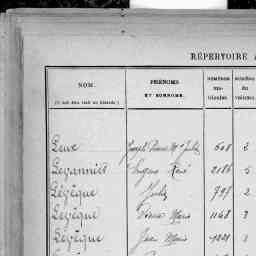 RÉPERTOIRE
NOM. PRÉNOMS ET SURNOMS. NUMÉROS MA- TRICULES. NUMÉROS DU VOLUME.
Leux Joseph Pierre Mie Jules 508 2
Lezannic Eugène René 2186 5
Lézèque Jules 727 2
Lézèque Pierre Marie 1148 3
Lézèque Jean Marie 1221 3